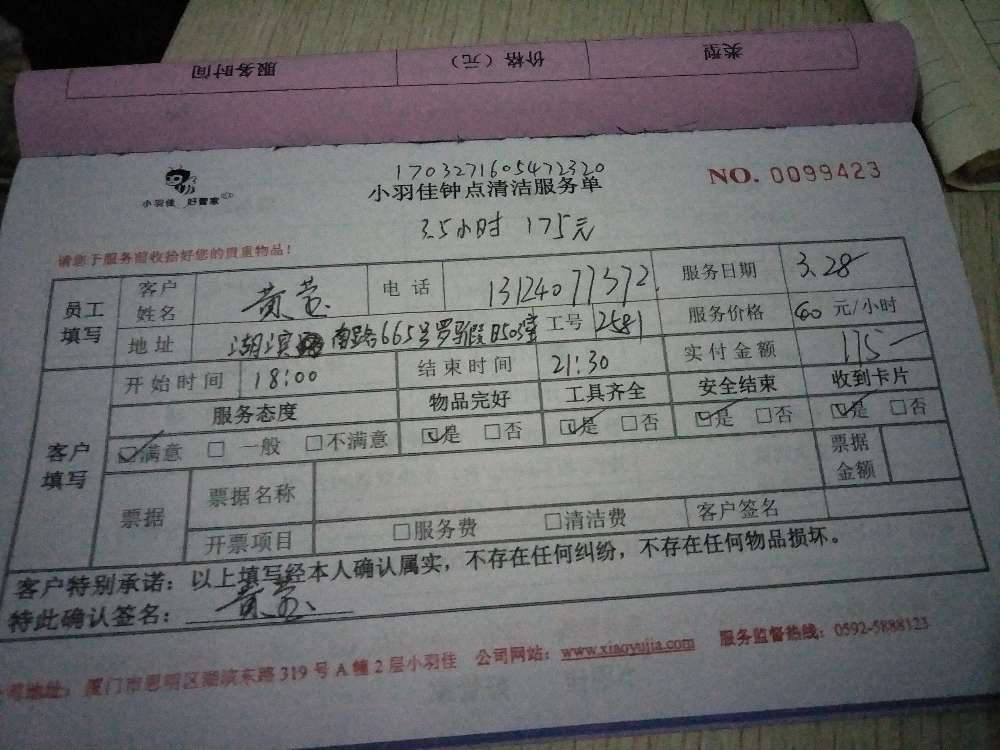 类型 价格（元） 服务时间
1703271605472320
小羽佳 好管家
小羽佳钟点清洁服务单
NO. 0099423
3.5小时 175元
请您于服务前收拾好您的贵重物品！
员工填写 客户姓名 黄莹 电话 13124077372 服务日期 3.28
地址 湖滨南路665号 8503室 工号 2581 服务价格 60 元/小时
客户填写 开始时间 18:00 结束时间 21:30 实付金额 175
服务态度 物品完好 工具齐全 安全结束 收到卡片
☑满意 □一般 □不满意 ☑是 □否 ☑是 □否 ☑是 □否 ☑是 □否
票据 票据名称 票据金额
开票项目 □服务费 □清洁费 客户签名
客户特别承诺：以上填写经本人确认属实，不存在任何纠纷，不存在任何物品损坏。
特此确认签名：黄莹
地址：厦门市思明区湖滨东路319号A幢2层小羽佳 公司网站：www.xiaoyujia.com 服务监督热线：0592-5888123